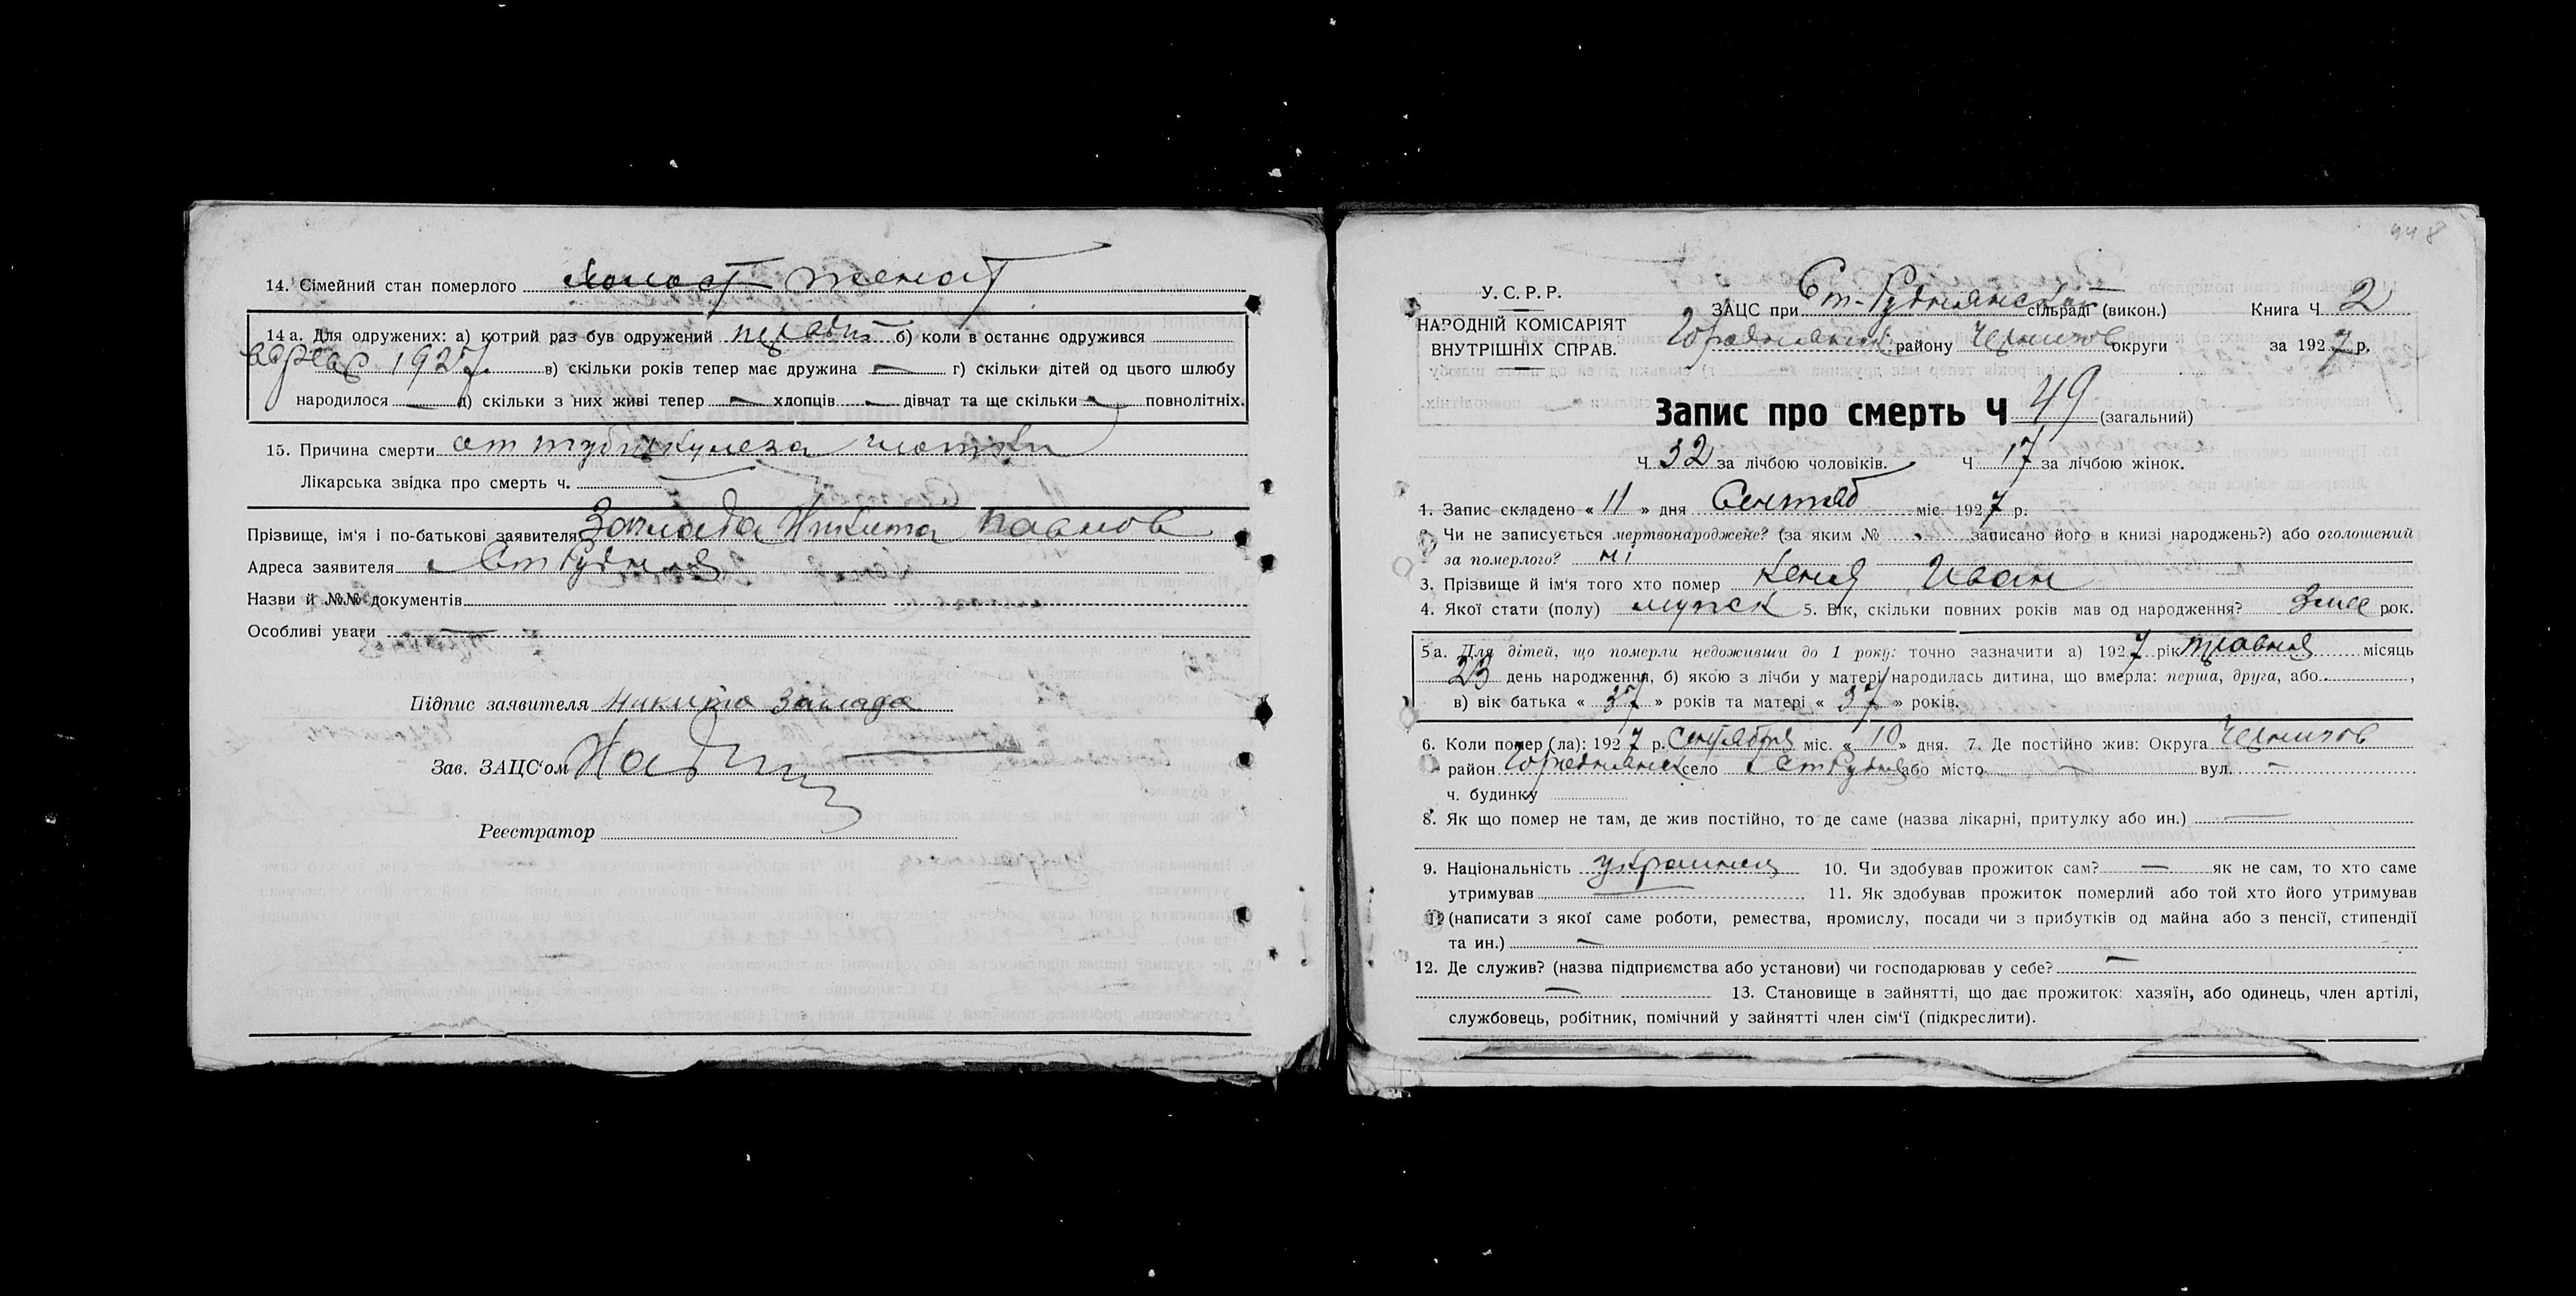 14. Сімейний стан померлого холост женат
14а. Для одружених: а) котрий раз був одружений б) коли в останнє одружився
1925 г. в) скільки років тепер має дружина — г) скільки дітей од цього шлюбу
народилося — д) скільки з них живі тепер — хлопців — дівчат та ще скільки — повнолітніх.
15. Причина смерти от туберкулеза
Лікарська звідка про смерть ч.
Прізвище, ім'я і по-батькові заявителя Заплада Никита Павлов
Адреса заявителя Ст Рудня
Назви й №№ документів
Особливі уваги —
Підпис заявителя Никита Заплада
Зав. ЗАЦС'ом
Реєстратор
448
У. С. Р. Р.
НАРОДНІЙ КОМІСАРІЯТ
ВНУТРІШНІХ СПРАВ.
ЗАЦС при Ст-Руднянской сільраді (викон.) Книга Ч 2
Городнянск району Чернигов округи за 1927 р.
Запис про смерть Ч 49 (загальний)
Ч 32 за лічбою чоловіків. Ч 17 за лічбою жінок.
1. Запис складено « 11 » дня Сентяб міс. 1927 р.
2. Чи не записується мертвонароджене? (за яким № записано його в книзі народжень?) або оголошений
за померлого? ні
3. Прізвище й ім'я того хто помер Кеня Иван
4. Якої стати (полу) мужск 5. Вік, скільки повних років мав од народження? 3 мес рок.
5а. Для дітей, що померли недоживши до 1 року: точно зазначити а) 1927 рік травня місяць
23 день народження, б) якою з лічби у матері народилась дитина, що вмерла: перша, друга, або ,
в) вік батька « 37 » років та матері « 37 » років.
6. Коли помер (ла): 1927 р. Сентября міс. « 10 » дня. 7. Де постійно жив: Округа Чернигов
район Городнянск село Ст Рудня або місто — вул. —
ч. будинку
8. Як що помер не там, де жив постійно, то де саме (назва лікарні, притулку або ин.) —
9. Національність украинец 10. Чи здобував прожиток сам? — як не сам, то хто саме
утримував 11. Як здобував прожиток померлий або той хто його утримував
(написати з якої саме роботи, ремества, промислу, посади чи з прибутків од майна або з пенсії, стипендії
та ин.) —
12. Де служив? (назва підприємства або установи) чи господарював у себе? —
— 13. Становище в зайнятті, що дає прожиток: хазяїн, або одинець, член артілі,
службовець, робітник, помічний у зайнятті член сім'ї (підкреслити).